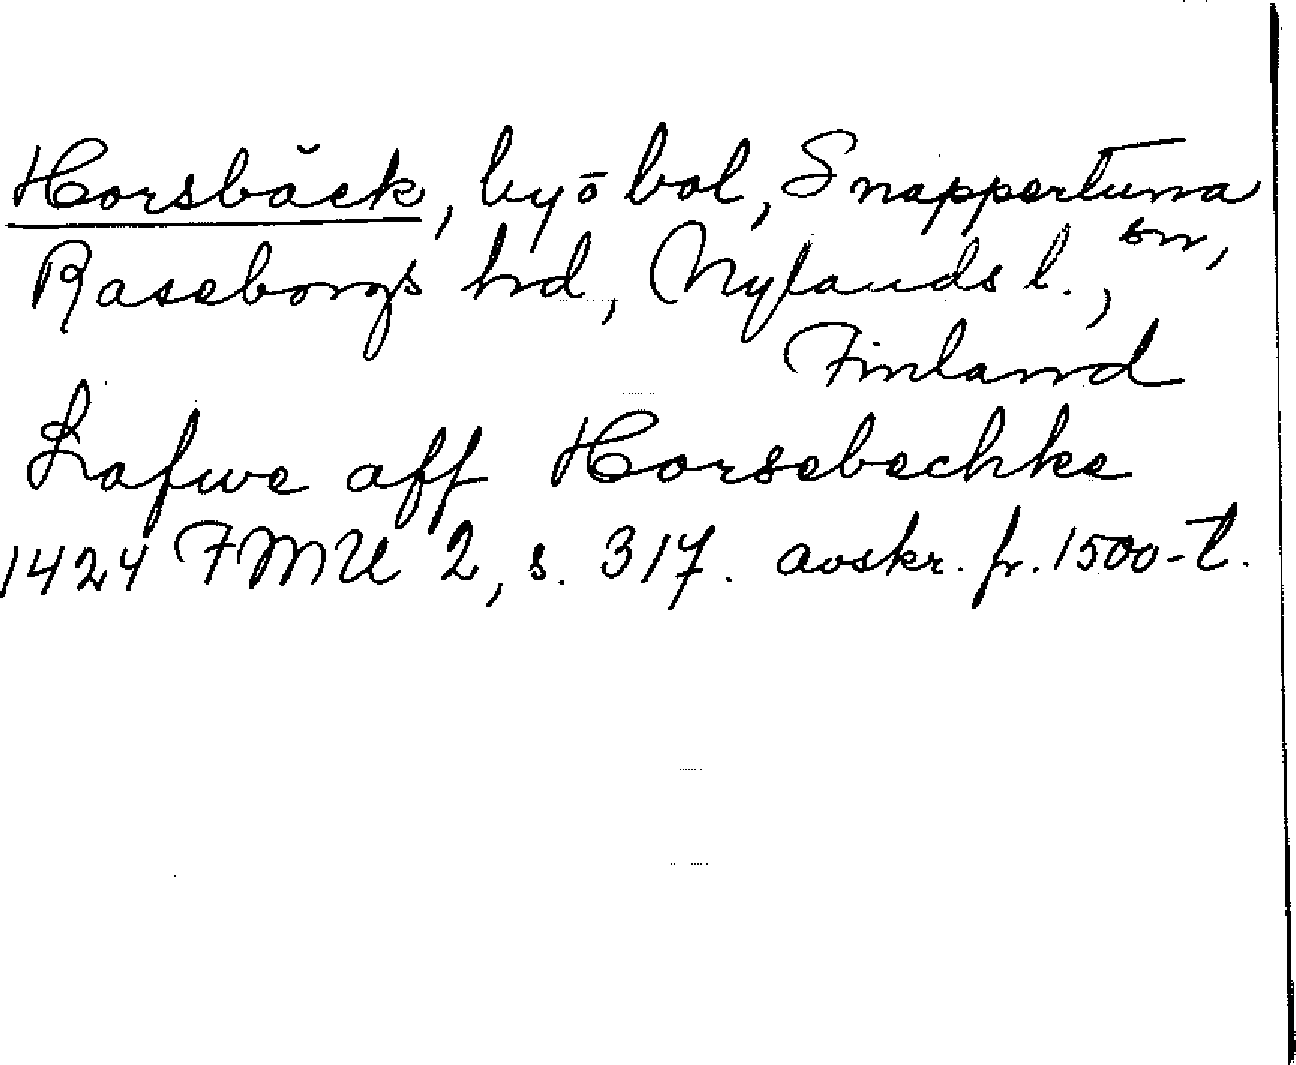 Horsbäck, by o bol, Snappertuna
sn,
Raseborgs hd, Nylands l.,
Finland
Lafwe aff Horsebechke
1424 FMU 2, s. 317. avskr. fr. 1500-t.